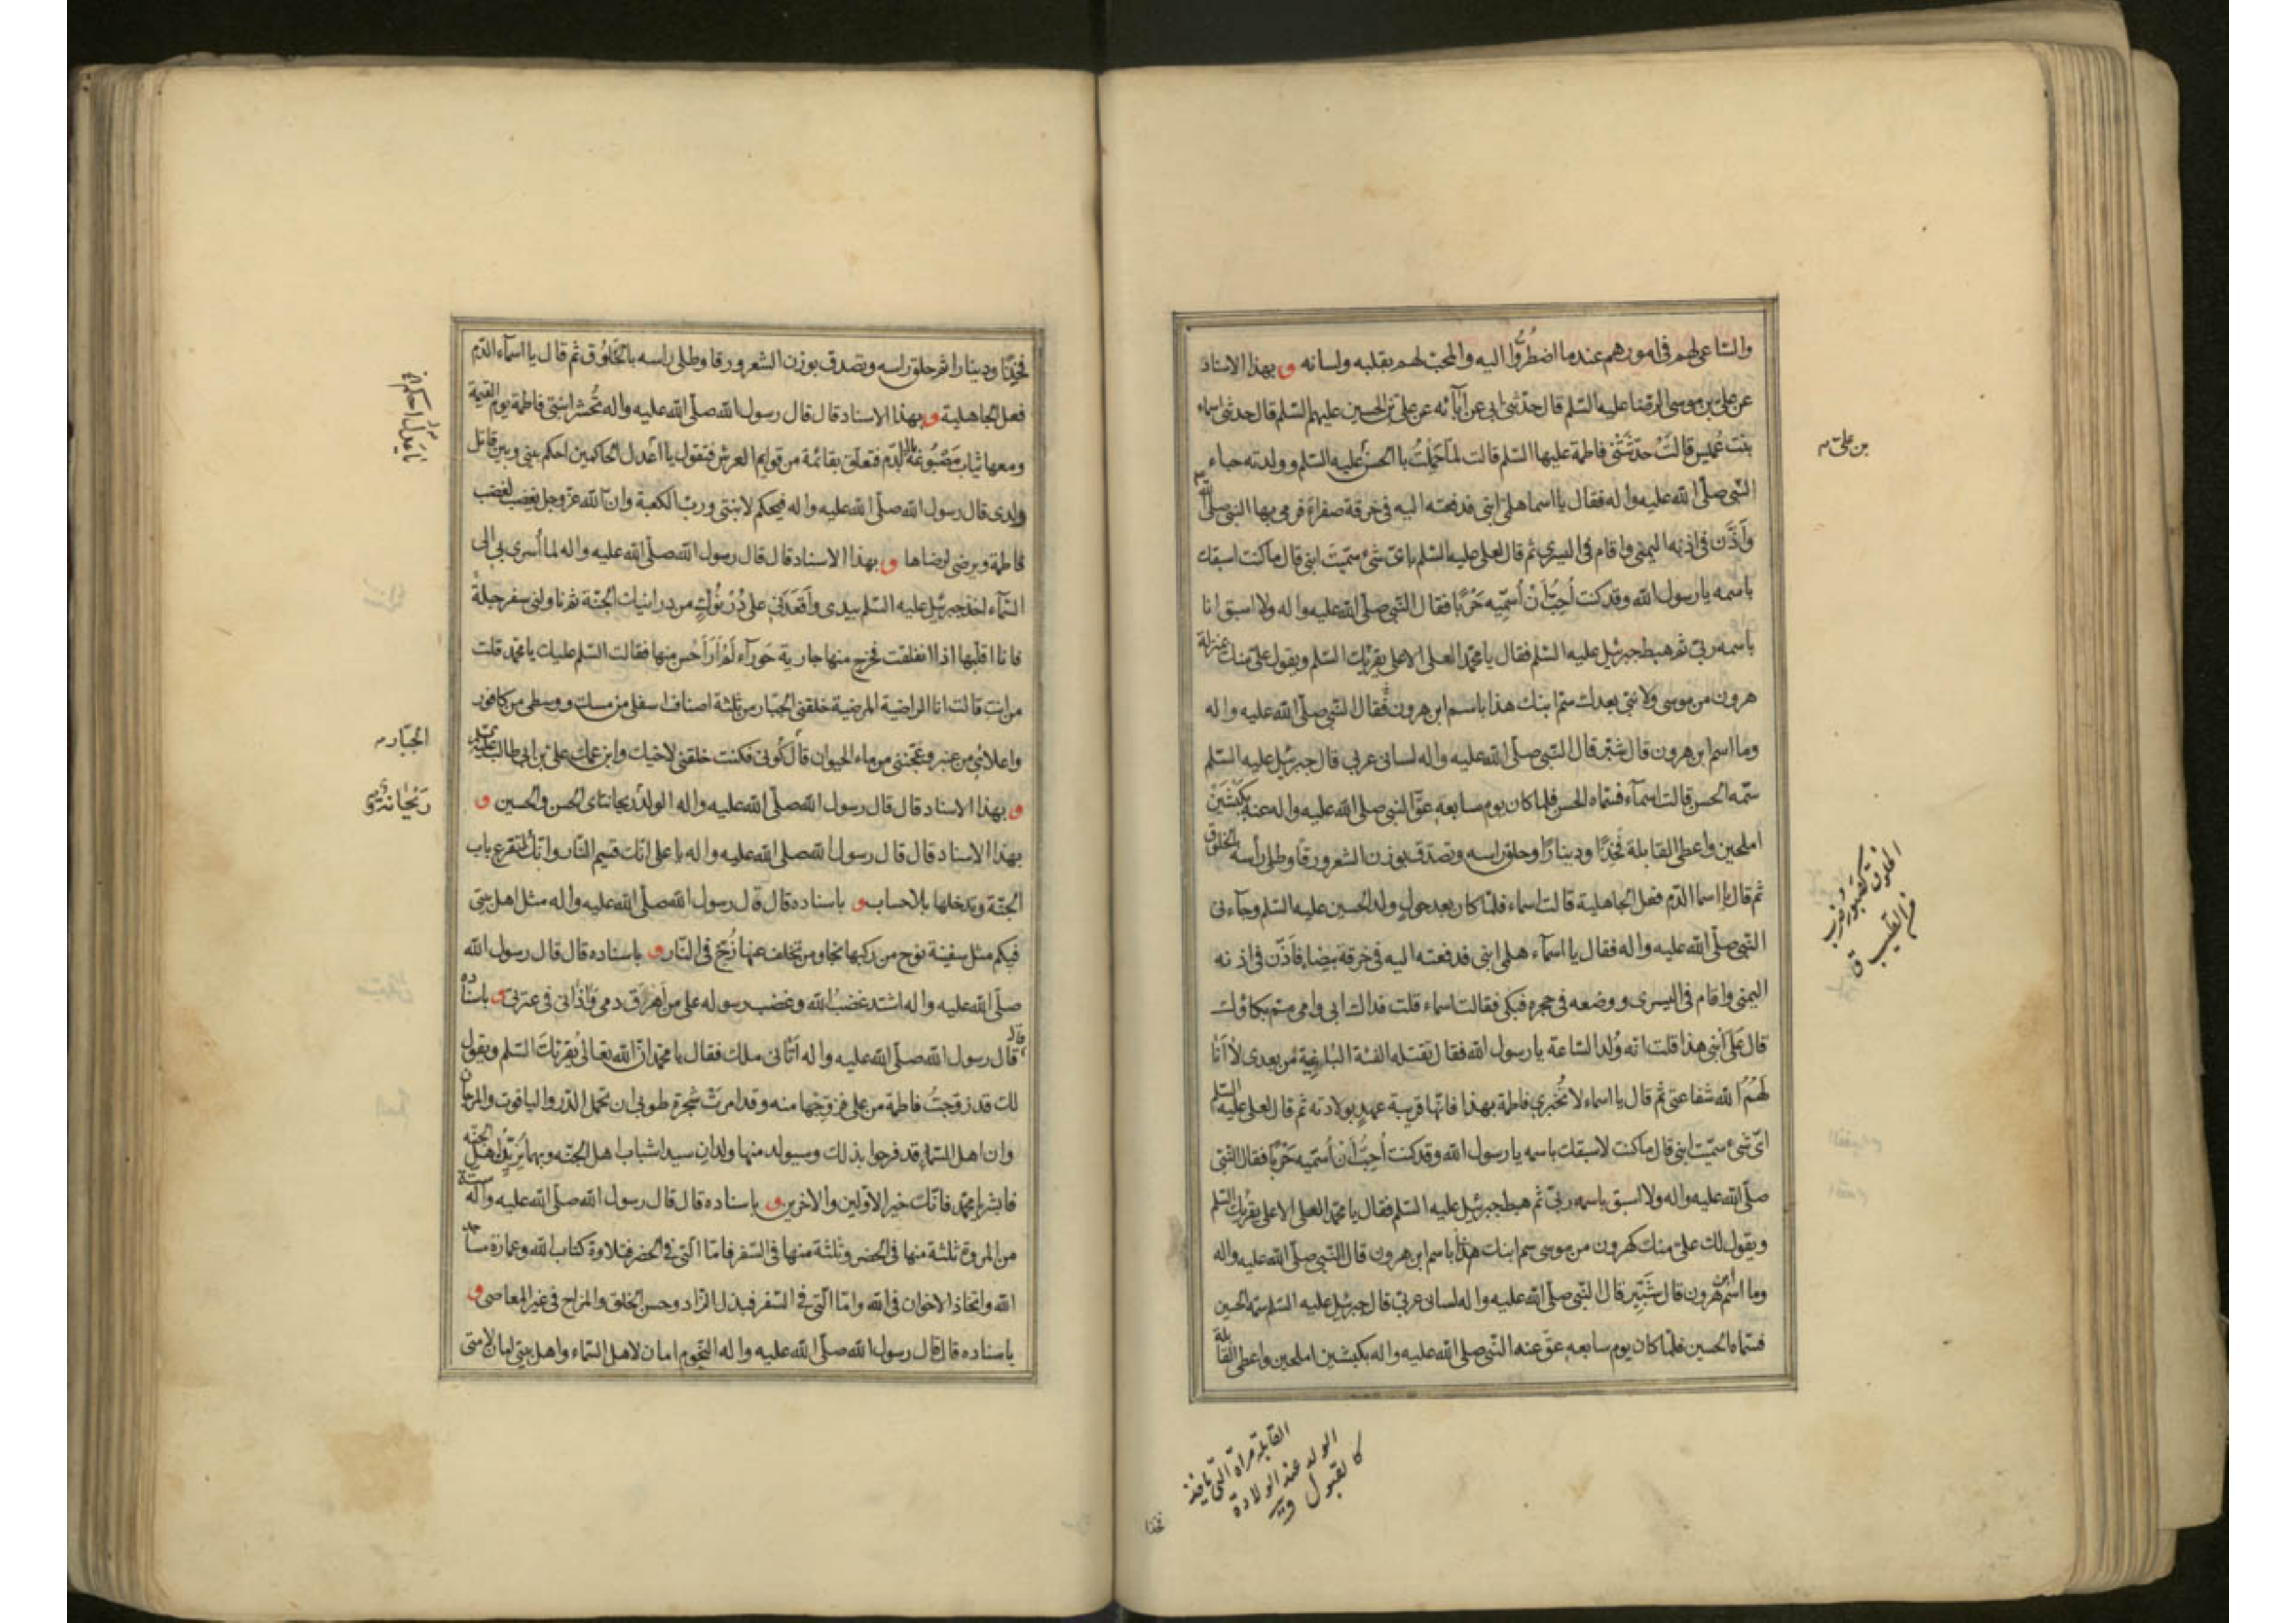 والساعی لهم فی امورهم عندما اضطُرُّوا الیه والمحب لهم بقلبه ولسانه و بهذا الاسناد
عن علی بن موسی الرضا علیه السّلم قال حدّثنی ابی عن آبآئه عن علی بن الحسین علیهم السّلم قال حدثتنی اسماء
بنت عُمیس قالت حدّثَتْنی فاطمة علیها السّلم قالت لمّا حَمَلْتُ بالحسن علیه السّلم وولدته جاء
النّبی صلّی الله علیه واله فقال یا اسما هلمّی ابنی فدفعته الیه فی خرقة صفراءَ فرمی بها النبی صلی الله
وأذَّن فی اذنه الیمنی واقام فی الیسری ثم قال لعلی علیه السّلم بایّ شیء سمّیتَ ابنی قال ما کنت اسبقك
باسمه یا رسول الله وقد کنت اُحِبُّ اَنْ اُسمّیه حَرْبًا فقال النّبی صلّی الله علیه واله ولا اسبق انا
باسمه ربی ثم هبط جبرئیل علیه السّلم فقال یا محمّد العلی الاعلی یقرئك السّلم ویقول علیّ منك بمنزلة
هرون من موسی ولا نبی بعدك سمّ ابنك هذا باسم ابن هرون فقال النّبی صلّی الله علیه واله
وما اسم ابن هرون قال شبّر قال النّبی صلّی الله علیه واله لسانی عربی قال جبرئیل علیه السّلم
سمّه الحسن قالت اسمآء فسمّاه الحسن فلما کان یوم سابعه عقّ النّبی صلّی الله علیه واله عنه بکبْشَیْن
املحین واعطی القابلة فَخِذًا ودینارًا وحلق راسه وتصدّق بوزن الشعر ورقًا وطلی رأسه بالخلوق
ثم قال یا اسما الدّم فعل الجاهلیة قالت اسماء فلمّا کان بعد حولٍ ولد الحسین علیه السّلم وجآءنی
النّبی صلّی الله علیه واله فقال یا اسمآء هلمّی ابنی فدفعته الیه فی خرقة بیضاء فاَذّن فی اذنه
الیمنی واقام فی الیسری ووضعه فی حجره فبکی فقالت اسماء قلت فداك ابی وامی ممّ بکاؤك
قال عَلَی ابْنِی هذا قلت انه وُلد الساعة یا رسول الله فقال تقتله الفئة الباغیة من بعدی لا اَنا
لَهُمُ الله شفاعتی ثم قال یا اسماء لا تُخبری فاطمة بهذا فانّها قریبة عهدٍ بولادته ثم قال لعلی علیه السّلم
ایّ شیء سمّیت ابنی قال ما کنت لاسبقك باسمه یا رسول الله وقد کنت اُحِبُّ اَنْ اُسمّیه حَرْبًا فقال النّبی
صلّی الله علیه واله ولا اسبق باسمه ربّی ثم هبط جبرئیل علیه السّلم فقال یا محمّد العلی الاعلی یقرئك السّلم
ویقول لك علیّ منك کهرون من موسی سم ابنك هذا باسم ابن هرون قال النّبی صلّی الله علیه واله
وما اسم ابن هرون قال شَبّیر قال النّبی صلّی الله علیه واله لسانی عربیّ قال جبرئیل علیه السّلم سمّه الحسین
فسمّاه الحسین فلمّا کان یوم سابعه عقّ عنه النّبی صلی الله علیه واله بکبشین املحین واعطی القابلة
بن علیّ
الخلوق کصبور ضرب
من الطیب ق
القابلة مراة الّتی تاخذ
الولد عند الولادة
کالقبول
فخذا
فخِذًا ودینارا ثم حلق راسه وتصدق بوزن الشعر ورقا وطلی راسه بالخَلُوق ثم قال یا اسمآء الدّم
فعل الجاهلیة و بهذا الاسناد قال قال رسول الله صلّی الله علیه واله تُحشر ابنتی فاطمة یوم القیمة
ومعها ثیاب مَصْبُوغة بالدّم فتعلّق بقائمة من قوایم العرش فتقول یا اَعْدل الحاکمین احکم بینی وبین قاتل
ولدی قال رسول الله صلّی الله علیه واله فیحکم لابنتی وربّ الکعبة وانّ الله عزّ وجل یغضب لغضب
فاطمة ویرضی لرضاها و بهذا الاسناد قال قال رسول الله صلّی الله علیه واله لما اُسری بی الی
السّمآء اخذ جبرئیل علیه السّلم بیدی واَقعَدَنی علی دُرْنُوكٍ من درانیك الجنّة ثم ناولنی سفرجلةً
فانا اقلّبها اذا انفلقت فخرج منها جاریة حَورآء لَمْ اَرَ اَحْسن منها فقالت السّلم علیك یا محمّد قلت
من انت قالت انا الراضیة المرضیة خلقنی الجبّار من ثلثة اصناف اسفلی من مسك ووسطی من کافور
واعلائی من عنبر وعَجَننی من ماء الحیوان قال کُونی فکنت خلقنی لاخیك وابن عمك علی بن ابی طالب
و بهذا الاسناد قال قال رسول الله صلّی الله علیه واله الولد ریحانتای الحسن والحسین و
بهذا الاسناد قال قال رسول الله صلی الله علیه واله یا علی انّك قسیم النّار وانّك لتقرع باب
الجنّة وتدخلها بلا حساب و باسناده قال قال رسول الله صلّی الله علیه واله مثل اهل بیتی
فیکم مثل سفینة نوح من رکبها نجا ومن تخلف عنها زُجّ فی النّار و باسناده قال قال رسول الله
صلّی الله علیه واله اشتد غضبُ الله وغضب رسوله علی من اَهرَقَ دمی واٰذانی فی عترتی و باسناده
قال قال رسول الله صلّی الله علیه واله اَتانی ملك فقال یا محمّد انّ الله تعالی یُقرئك السّلم ویقول
لك قد زوّجتُ فاطمة من علی فزوّجها منه وقد امرتْ شجرة طوبی ان تحمل الدّر والیاقوت والمرجان
وان اهل السّماء قد فرحوا بذلك وسیولد منها ولدان سیدا شباب اهل الجنّه وبهما یُزیّن اهل الجنّه
فابشر یا محمّد فانّك خیر الاوّلین والاخرین و باسناده قال قال رسول الله صلّی الله علیه واله ستة
من المروة ثلثة منها فی الحضر وثلثة منها فی السّفر فامّا الّتی فی الحضر فتلاوة کتاب الله وعمارة مساجد
الله واتخاذ الاخوان فی الله وامّا الّتی فی السّفر فبذل الزّاد وحسن الخلق والمزاح فی غیر المعاصی و
باسناده قال قال رسول الله صلّی الله علیه واله النّجوم امان لاهل السّماء واهل بیتی امان لامتی
یا عدل احکم
الجبّار